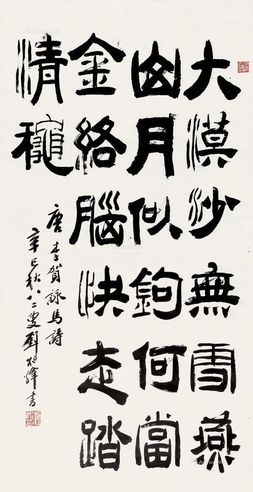 大漠沙無雪燕
山月似鉤何當
金絡腦快走踏
清穐
唐李賀詠馬詩
辛巳秋八二叟劉書